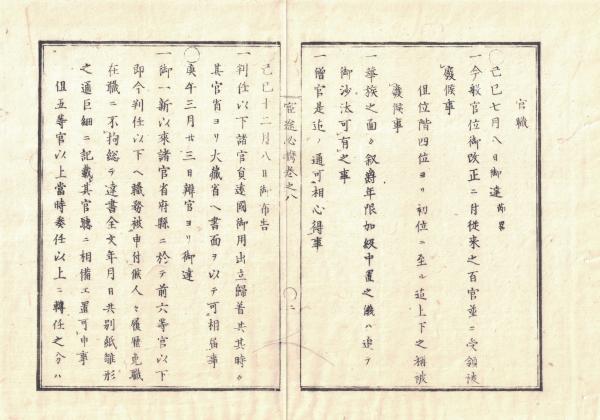 官職
〇己巳七月八日御達 節畧
一今般官位御改正ニ付従来之百官並ニ受領被
廃候事
但位階四位ヨリ初位ニ至ル迠上下之稱被
廃候事
一華族之面々叙爵年限加級中置之儀ハ追テ
御沙汰可有之事
一僧官是迠ノ通可相心得事
巻之八
〇己巳十二月八日御布告
一判任以下諸官員遠國御用出立歸着共其時々
其官省ヨリ大藏省ヘ書面ヲ以テ可相届事
〇庚午三月廿三日辨官ヨリ御達
一御一新以来諸官省府縣ニ於テ前六等官以下
即今判任以下ヘ職務被申付候人々履歴免職
在職ニ不拘総テ達書全文年月日共別紙雛形
之通巨細ニ記載其官聴ニ相備エ置可申事
但五等官以上當時奏任以上ニ轉任之分ハ